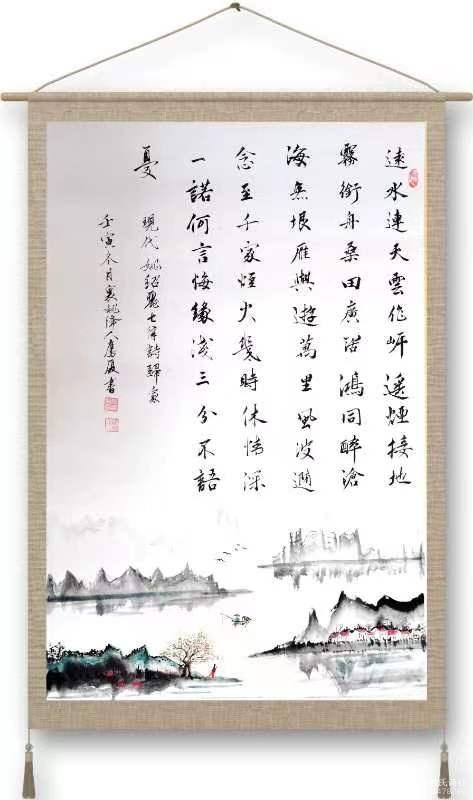 遠水連天雲作岈遙煙接地
霧銜舟桑田廣浩鴻同醉滄
海無垠雁與遊萬里風波
念至千家煙火幾時休情深
一諾何言悔緣淺三分不語
憂
現代姚紹麗七律詩歸
壬寅冬月姚偉人書